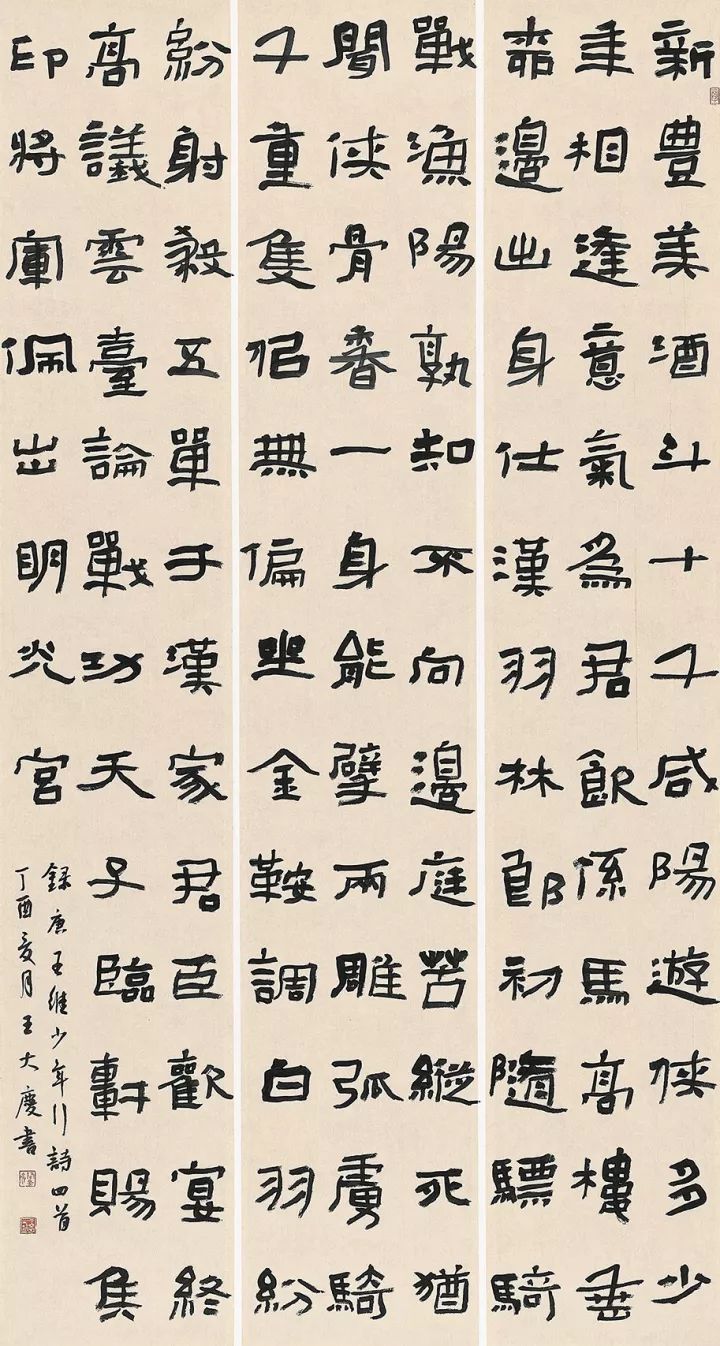 新豐美酒斗十千咸陽遊俠多少
年相逢意氣為君飲係馬高樓垂
柳邊出身仕漢羽林郎初隨驃騎
戰漁陽孰知不向邊庭苦縱死猶
聞俠骨香一身能擘兩雕弧虜騎
千重隻似無偏坐金鞍調白羽紛
紛射殺五單于漢家君臣歡宴終
高議雲臺論戰功天子臨軒賜侯
印將軍佩出明光宮
錄唐王維少年行詩四首
丁酉夏月王大慶書